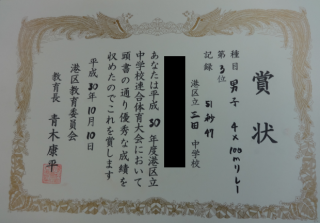 賞状
種目 男子 4×100mリレー
第3位
記録 51秒47
港区立三田中学校
あなたは平成30年度港区立
中学校連合体育大会において
頭書の通り優秀な成績を
収めたのでこれを賞します
平成30年10月10日
港区教育委員会
教育長 青木康平